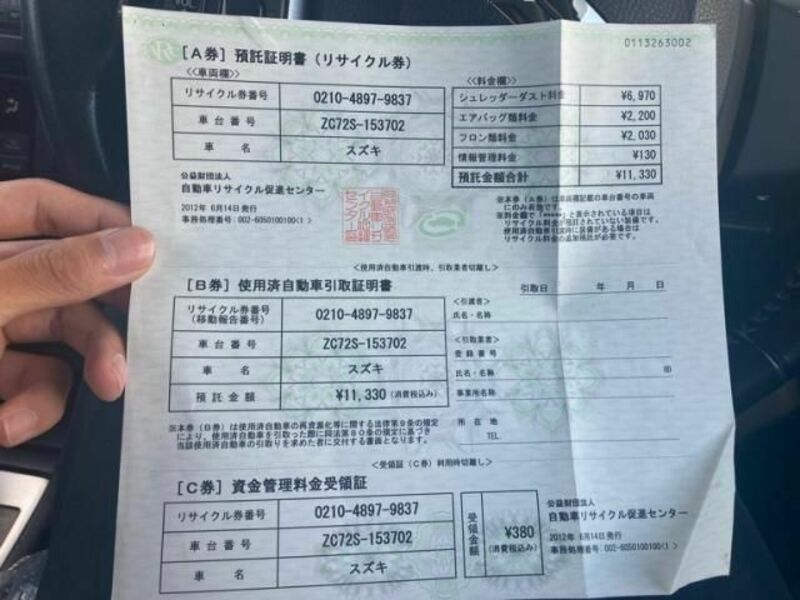 0113263002
[A券] 預託証明書（リサイクル券）
≪車両欄≫
リサイクル券番号 0210-4897-9837
車台番号 ZC72S-153702
車名 スズキ
≪料金欄≫
シュレッダーダスト料金 ¥6,970
エアバッグ類料金 ¥2,200
フロン類料金 ¥2,030
情報管理料金 ¥130
預託金額合計 ¥11,330
公益財団法人
自動車リサイクル促進センター
2012年 6月14日発行
事務処理番号：002-6050100100<1 >
※本券（A券）は車両欄記載の車台番号の車両
にのみ有効です。
※料金欄で「*****」と表示されている項目は
リサイクル料金が預託されていない装備です。
使用済自動車引渡時に装備がある場合は
リサイクル料金の追加預託が必要です。
＜使用済自動車引渡時、引取業者切離し＞
[B券] 使用済自動車引取証明書
引取日 年 月 日
リサイクル券番号
（移動報告番号） 0210-4897-9837
車台番号 ZC72S-153702
車名 スズキ
預託金額 ¥11,330（消費税込み）
＜引渡者＞
氏名・名称
＜引取業者＞
登録番号
氏名・名称 印
事業所名称
所在地
TEL.
※本券（B券）は使用済自動車の再資源化等に関する法律第9条の規定
により、使用済自動車を引取った際に同法第80条の規定に基づき
当該使用済自動車の引取りを求めた者に交付する書面となります。
＜受領証（C券）利用時切離し＞
[C券] 資金管理料金受領証
リサイクル券番号 0210-4897-9837
車台番号 ZC72S-153702
車名 スズキ
受領金額 ¥380
（消費税込み）
公益財団法人
自動車リサイクル促進センター
2012年 6月14日発行
事務処理番号：002-6050100100<1 >